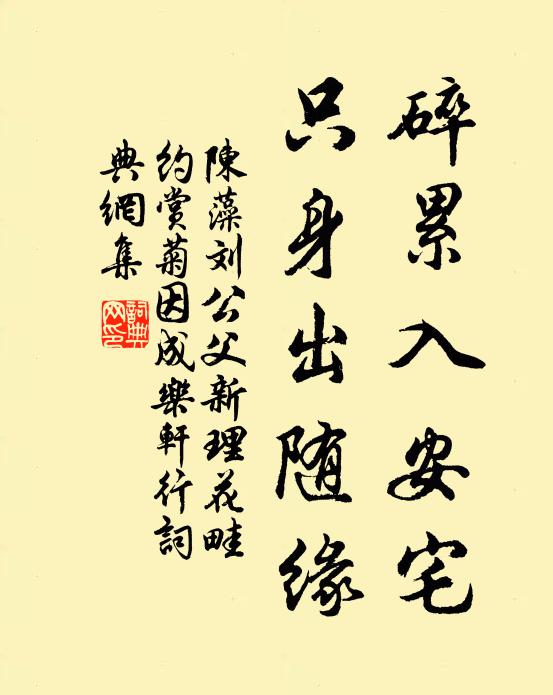 碎累入安宅
只身出随缘
陳藻刘公父新理花畦
约赏菊因成樂軒行詞
典網集
詞典網印